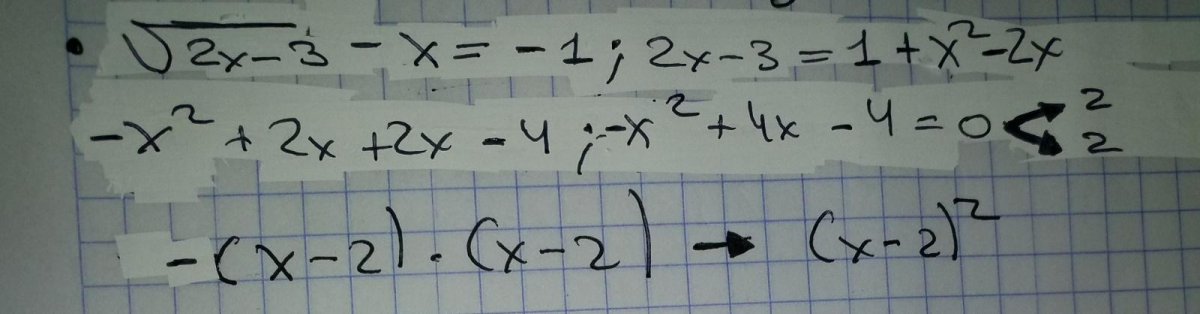 • √(2x-3) - x = -1; 2x-3 = 1+x²-2x
-x² + 2x + 2x - 4; -x² + 4x - 4 = 0 < 2 2
-(x-2)·(x-2) → (x-2)²